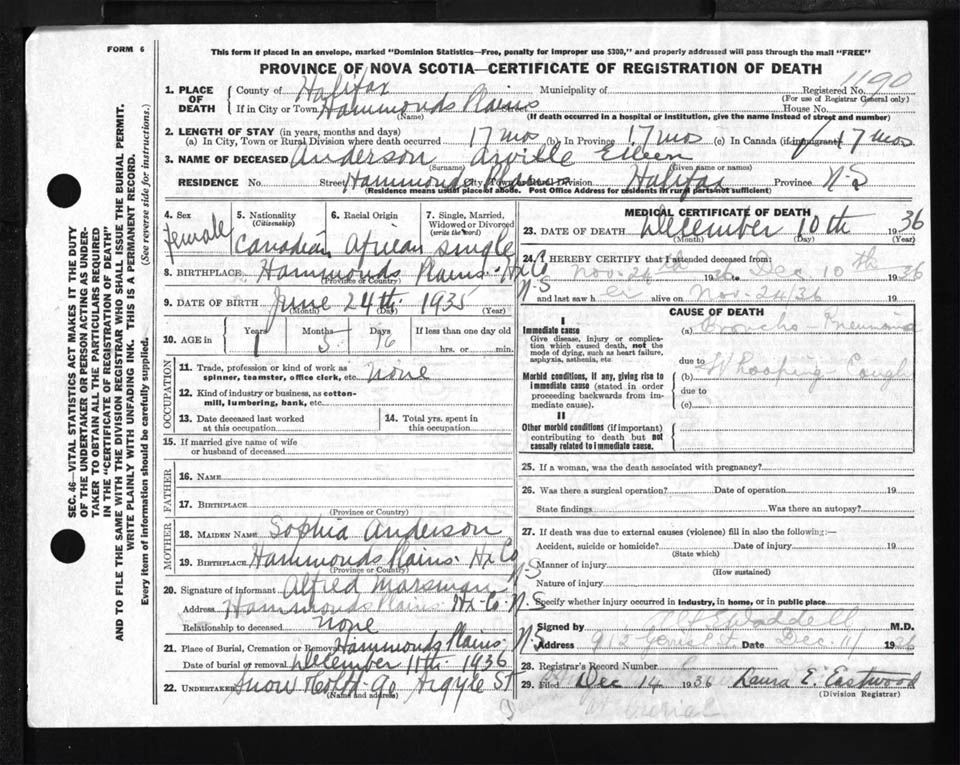 FORM 6
This form if placed in an envelope, marked "Dominion Statistics—Free, penalty for improper use $300," and properly addressed will pass through the mail "FREE"
PROVINCE OF NOVA SCOTIA—CERTIFICATE OF REGISTRATION OF DEATH
1190
1. PLACE OF DEATH
County of Halifax Municipality of Registered No.
(For use of Registrar General only)
If in City or Town Hammonds Plains Street House No.
(Name) (If death occurred in a hospital or institution, give the name instead of street and number)
2. LENGTH OF STAY (in years, months and days)
(a) In City, Town or Rural Division where death occurred 17 mos (b) In Province 17 mos (c) In Canada (if immigrant) 17 mos
3. NAME OF DECEASED Anderson Arville Eileen
(Surname) (Given name or names)
RESIDENCE No. Street Hammonds Plains City, Town or Rural Division Halifax Province N S
(Residence means usual place of abode. Post Office Address for residents in rural parts not sufficient)
4. Sex female
5. Nationality (Citizenship) Canadian
6. Racial Origin African
7. Single, Married, Widowed or Divorced (write the word) single
8. BIRTHPLACE Hammonds Plains Hx Co N S
(Province or Country)
9. DATE OF BIRTH June 24th 1935
(Month) (Day) (Year)
10. AGE in Years Months Days If less than one day old
1 5 16 hrs. or min.
OCCUPATION
11. Trade, profession or kind of work as spinner, teamster, office clerk, etc. none
12. Kind of industry or business, as cotton-mill, lumbering, bank, etc.
13. Date deceased last worked at this occupation
14. Total yrs. spent in this occupation
15. If married give name of wife or husband of deceased
FATHER
16. NAME
17. BIRTHPLACE
(Province or Country)
MOTHER
18. MAIDEN NAME Sophia Anderson
19. BIRTHPLACE Hammonds Plains Hx Co N S
(Province or Country)
20. Signature of informant Alfred Marsman
Address Hammonds Plains Hx Co N S
Relationship to deceased none
21. Place of Burial, Cremation or Removal Hammonds Plains N S
Date of burial or removal December 11th 1936
22. UNDERTAKER Snow & Co Ltd 90 Argyle St
(Name and address)
MEDICAL CERTIFICATE OF DEATH
23. DATE OF DEATH December 10th 1936
(Month) (Day) (Year)
24. I HEREBY CERTIFY that I attended deceased from:
Nov. 24 1936 to Dec 10th 1936
and last saw h er alive on Nov. 24/36 19
CAUSE OF DEATH
I
Immediate cause
Give disease, injury or complication which caused death, not the mode of dying, such as heart failure, asphyxia, asthenia, etc.
(a) Broncho-Pneumonia
due to
Morbid conditions, if any, giving rise to immediate cause (stated in order proceeding backwards from immediate cause).
(b) Whooping-Cough
due to
(c)
II
Other morbid conditions (if important) contributing to death but not causally related to immediate cause.
25. If a woman, was the death associated with pregnancy?
26. Was there a surgical operation? Date of operation 19
State findings Was there an autopsy?
27. If death was due to external causes (violence) fill in also the following:—
Accident, suicide or homicide? Date of injury 19
(State which)
Manner of injury
(How sustained)
Nature of injury
Specify whether injury occurred in industry, in home, or in public place
Signed by Waddell M.D.
Address Date Dec. 11 1936
28. Registrar's Record Number
29. Filed Dec 14 1936 Laura E. Eastwood
(Division Registrar)
SEC. 46—VITAL STATISTICS ACT MAKES IT THE DUTY
OF THE UNDERTAKER OR PERSON ACTING AS UNDERTAKER TO OBTAIN ALL THE PARTICULARS REQUIRED
IN THE "CERTIFICATE OF REGISTRATION OF DEATH"
AND TO FILE THE SAME WITH THE DIVISION REGISTRAR WHO SHALL ISSUE THE BURIAL PERMIT.
WRITE PLAINLY WITH UNFADING INK. THIS IS A PERMANENT RECORD.
Every item of information should be carefully supplied. (See reverse side for instructions.)